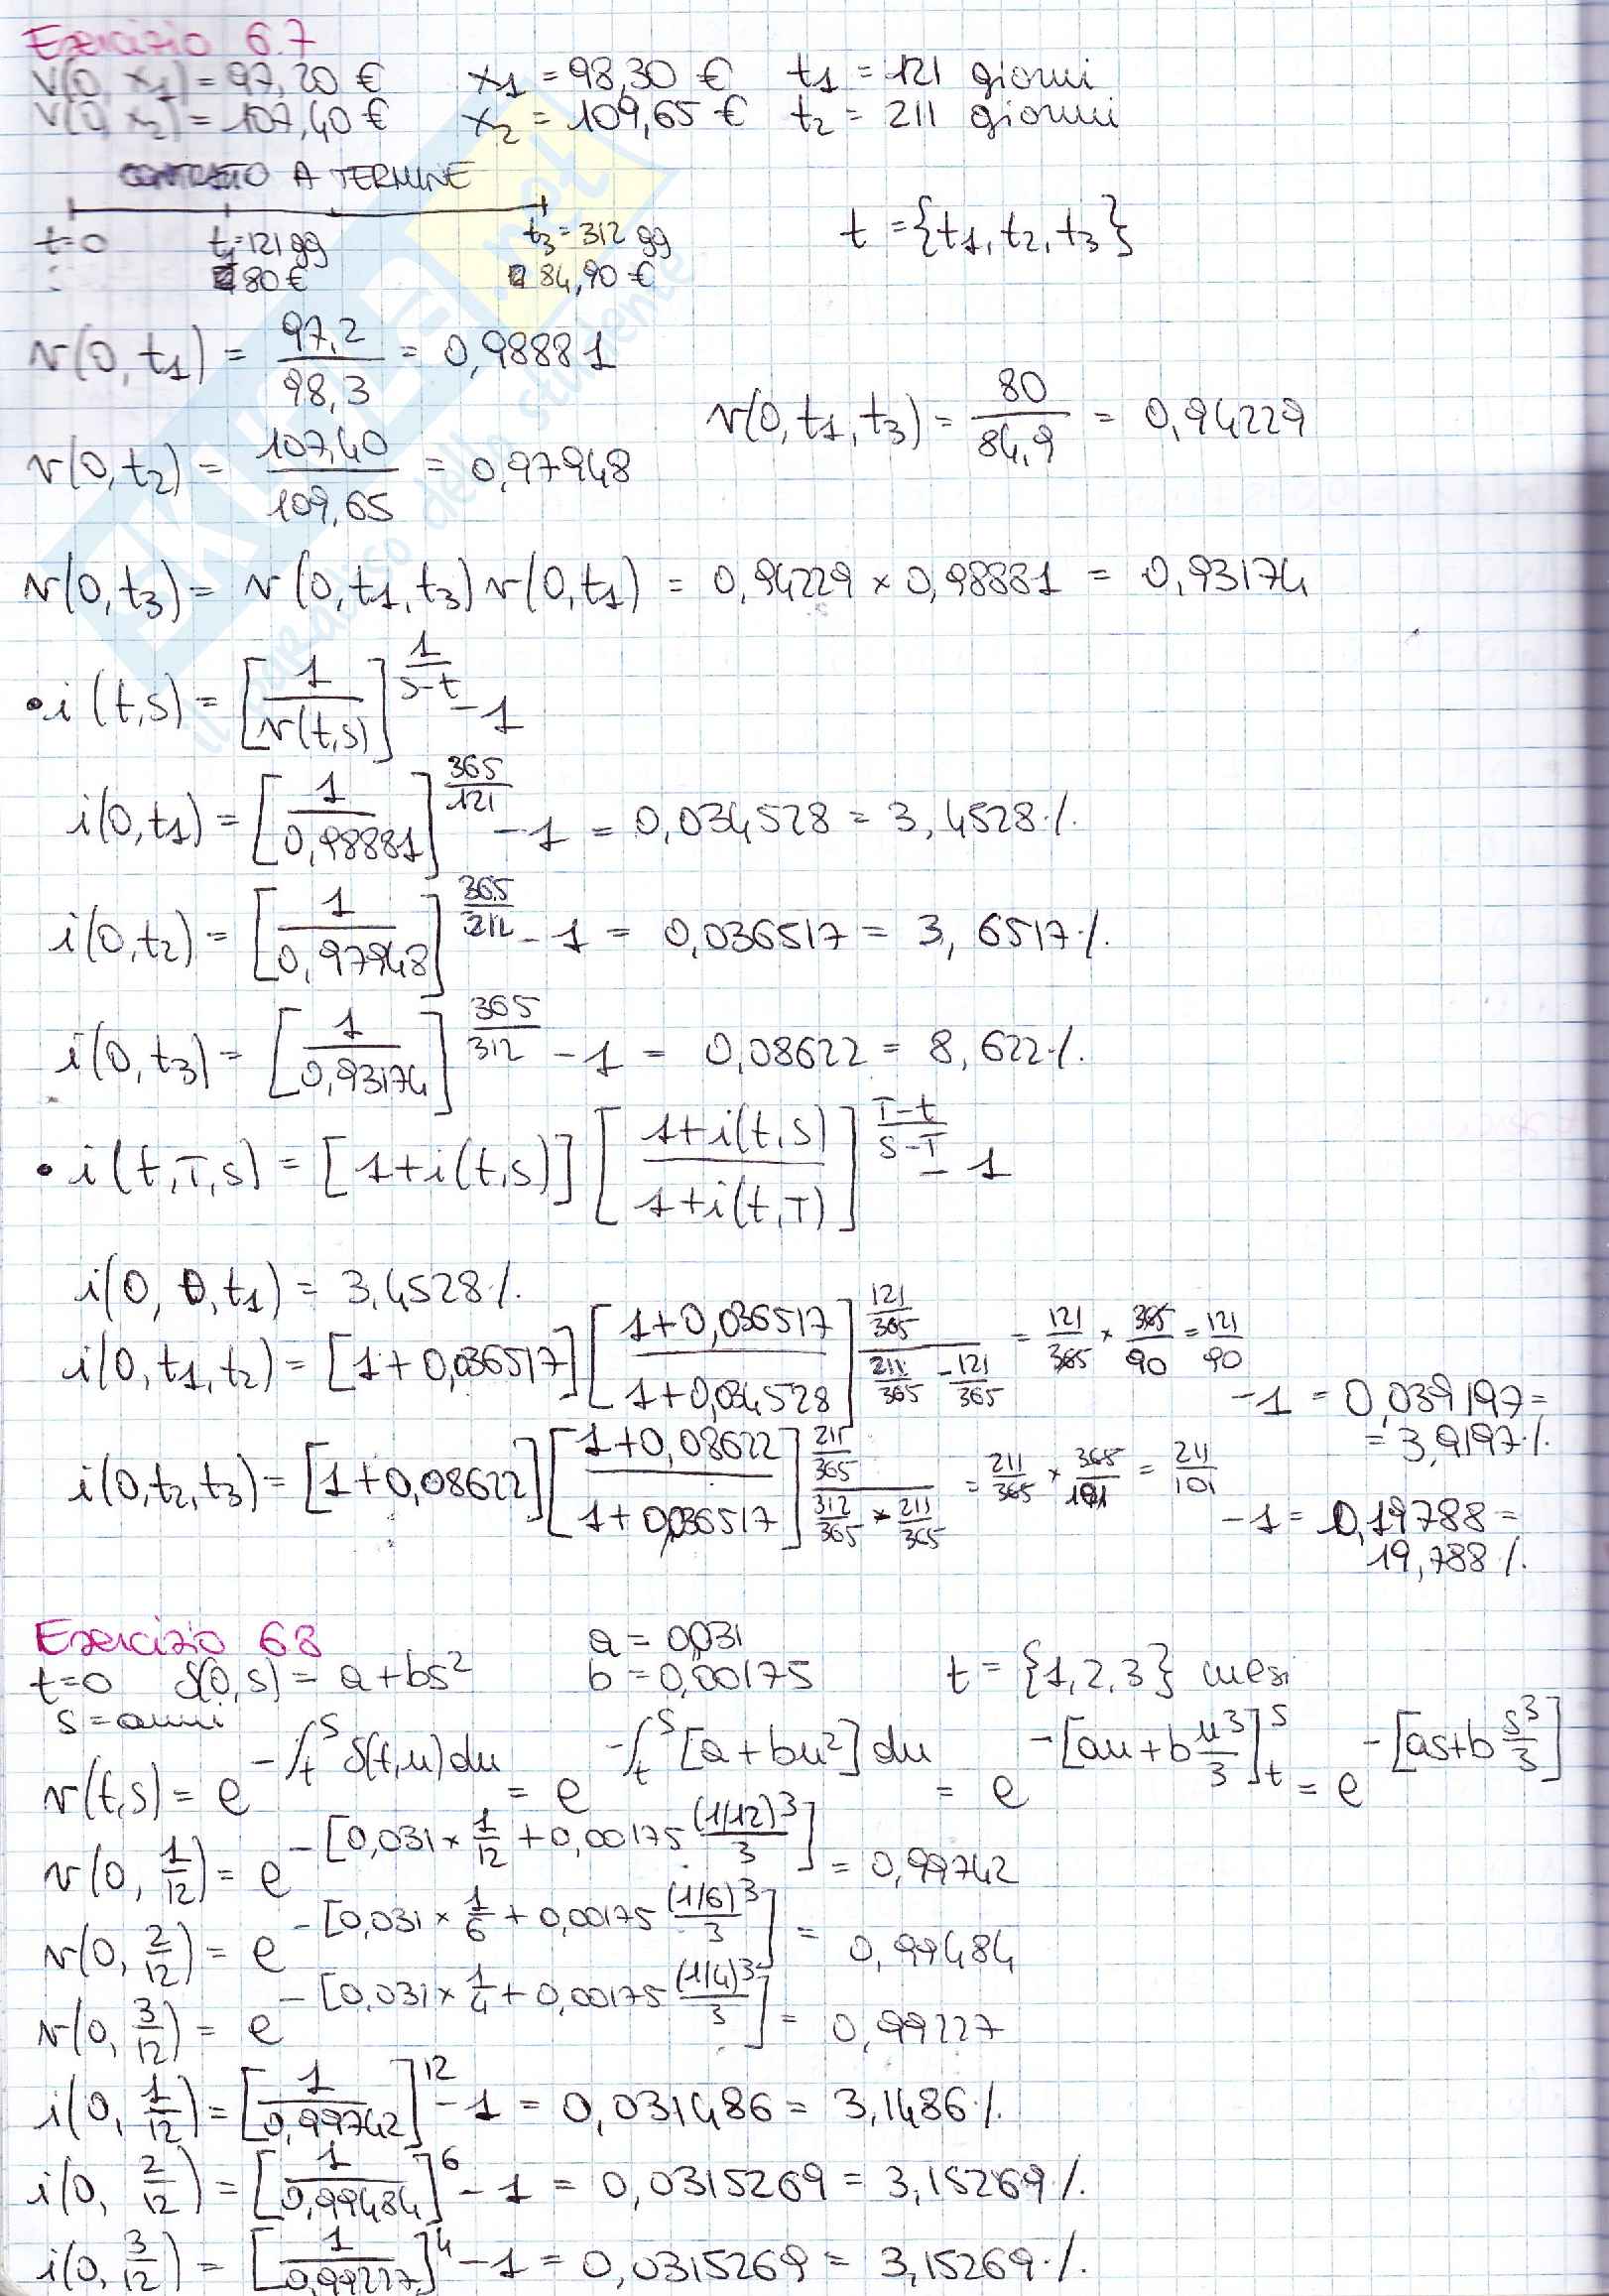 Esercizio 6.7
V(0, x1) = 97,20 € x1 = 98,30 € t1 = 121 giorni
V(0, x2) = 107,40 € x2 = 109,65 € t2 = 211 giorni
CONTRATTO A TERMINE
t=0 t1=121 gg t3=312 gg t = {t1, t2, t3}
80 € 84,90 €
v(0, t1) = 97,2/98,3 = 0,98881
v(0, t1, t3) = 80/84,9 = 0,94229
v(0, t2) = 107,40/109,65 = 0,97948
v(0, t3) = v(0, t1, t3) v(0, t1) = 0,94229 × 0,98881 = 0,93174
• i(t,s) = [1/v(t,s)]^(1/(s-t)) - 1
i(0,t1) = [1/0,98881]^(365/121) - 1 = 0,034528 = 3,4528 %
i(0,t2) = [1/0,97948]^(365/211) - 1 = 0,036517 = 3,6517 %
i(0,t3) = [1/0,93174]^(365/312) - 1 = 0,08622 = 8,622 %
• i(t,T,s) = [1+i(t,s)] [(1+i(t,s))/(1+i(t,T))]^((T-t)/(s-T)) - 1
i(0, 0, t1) = 3,4528 %
i(0, t1, t2) = [1+0,036517] [(1+0,036517)/(1+0,034528)]^((121/365)/(211/365 - 121/365)) = 121/365 × 365/90 = 121/90 - 1 = 0,039197 =
= 3,9197 %
i(0,t2,t3) = [1+0,08622] [(1+0,08622)/(1+0,036517)]^((211/365)/(312/365 - 211/365)) = 211/365 × 365/101 = 211/101 - 1 = 0,19788 =
19,788 %
Esercizio 6.8 a = 0,031
t=0 δ(0,s) = a+bs² b = 0,00175 t = {1,2,3} mesi
s = anni
v(t,s) = e^(-∫_t^s δ(t,u)du) = e^(-∫_t^s [a+bu²]du) = e^(-[au+b u³/3]_t^s) = e^(-[as+b s³/3])
v(0, 1/12) = e^(-[0,031 × 1/12 + 0,00175 (1/12)³/3]) = 0,99742
v(0, 2/12) = e^(-[0,031 × 1/6 + 0,00175 (1/6)³/3]) = 0,99484
v(0, 3/12) = e^(-[0,031 × 1/4 + 0,00175 (1/4)³/3]) = 0,99227
i(0, 1/12) = [1/0,99742]^12 - 1 = 0,031486 = 3,1486 %
i(0, 2/12) = [1/0,99484]^6 - 1 = 0,0315269 = 3,15269 %
i(0, 3/12) = [1/0,99227]^4 - 1 = 0,0315269 = 3,15269 %